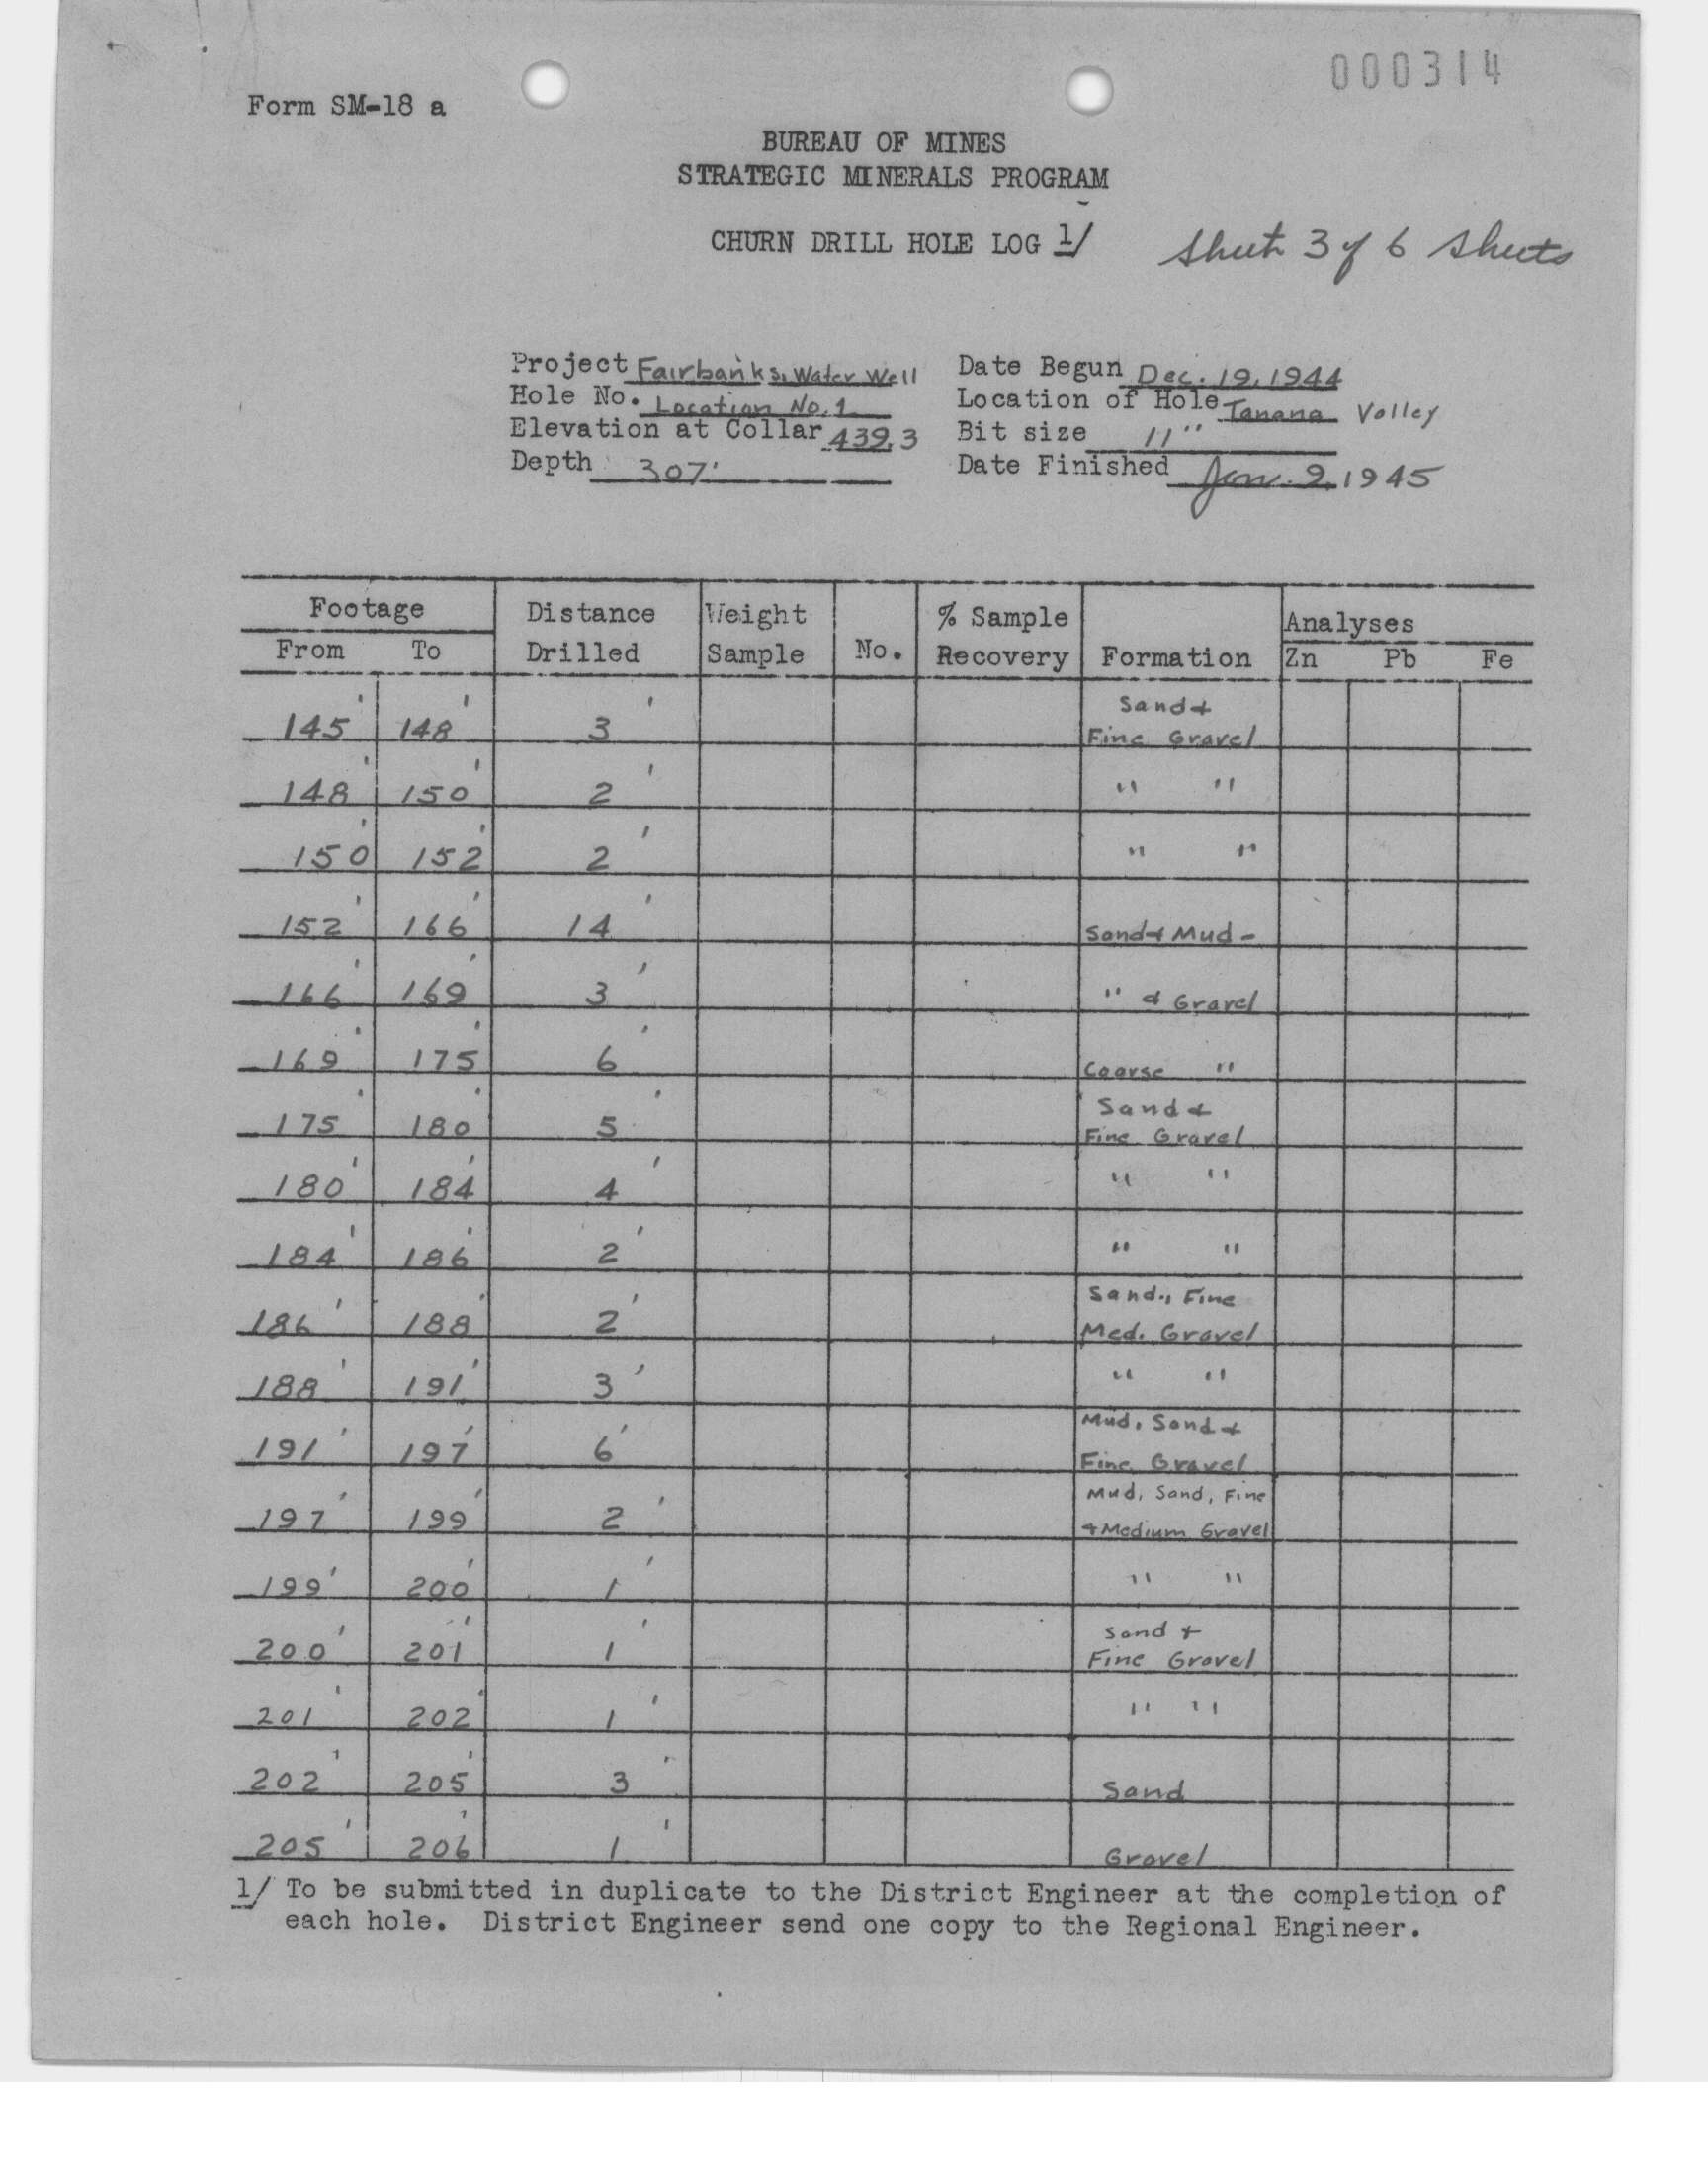 000314
Form SM-18 a
BUREAU OF MINES
STRATEGIC MINERALS PROGRAM
CHURN DRILL HOLE LOG 1/ Sheet 3 of 6 Sheets
Project Fairbanks, Water Well Date Begun Dec. 19, 1944
Hole No. Location No. 1 Location of Hole Tanana Valley
Elevation at Collar 439.3 Bit size 11"
Depth 307' Date Finished Jan. 2, 1945
Footage Distance Weight % Sample Analyses
From To Drilled Sample No. Recovery Formation Zn Pb Fe
Sand &
145' 148' 3' Fine Gravel
148' 150' 2' " "
150' 152' 2' " "
152' 166' 14' Sand & Mud -
166' 169' 3' " & Gravel
169' 175' 6' Coarse "
Sand &
175' 180' 5' Fine Gravel
180' 184' 4' " "
184' 186' 2' " "
Sand, Fine
186' 188' 2' Med. Gravel
188' 191' 3' " "
Mud, Sand &
191' 197' 6' Fine Gravel
Mud, Sand, Fine
197' 199' 2' & Medium Gravel
199' 200' 1' " "
Sand &
200' 201' 1' Fine Gravel
201' 202' 1' " "
202' 205' 3' Sand
205' 206' 1' Gravel
1/ To be submitted in duplicate to the District Engineer at the completion of
each hole. District Engineer send one copy to the Regional Engineer.